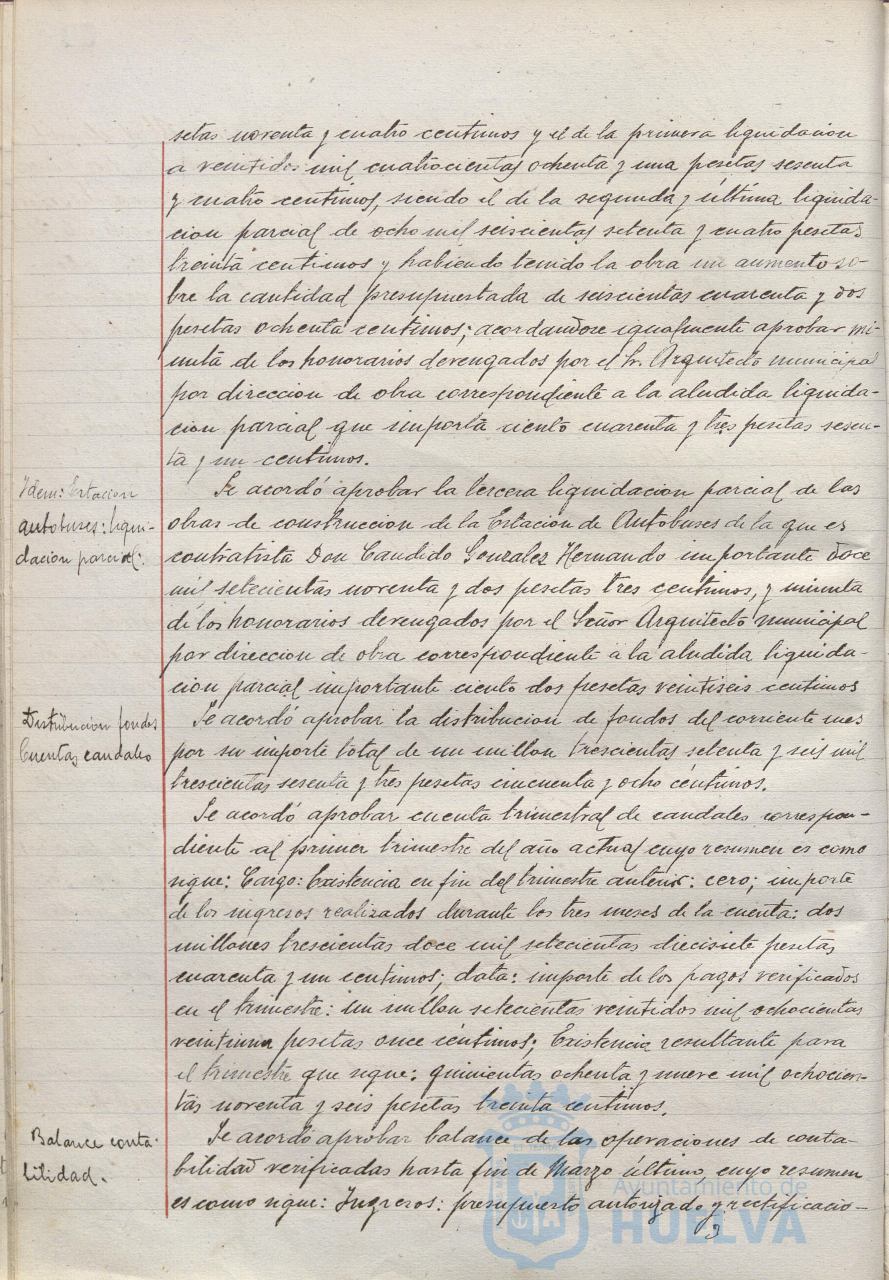 setas noventa y cuatro centimos y el de la primera liquidacion
a veintidos mil cuatrocientas ochenta y una pesetas sesenta
y cuatro centimos, siendo el de la segunda y última liquida-
cion parcial de ocho mil seiscientas setenta y cuatro pesetas
treinta centimos y habiendo tenido la obra un aumento so-
bre la cantidad presupuestada de seiscientas cuarenta y dos
pesetas ochenta centimos; acordandose igualmente aprobar mi-
nuta de los honorarios devengados por el Sr. Arquitecto municipal
por direccion de obra correspondiente a la aludida liquida-
cion parcial que importa ciento cuarenta y tres pesetas sesen-
ta y un centimos.
Idem: Estacion
autobuses: liqui-
dacion parcial.
Se acordó aprobar la tercera liquidacion parcial de las
obras de construccion de la Estacion de Autobuses de la que es
contratista Don Candido Gonzalez Hernando importante doce
mil setecientas noventa y dos pesetas tres centimos, y minuta
de los honorarios devengados por el Señor Arquitecto municipal
por direccion de obra correspondiente a la aludida liquida-
cion parcial importante ciento dos pesetas veintiseis centimos
Distribucion fondos
Cuentas caudales
Se acordó aprobar la distribucion de fondos del corriente mes
por su importe total de un millon trescientas setenta y seis mil
trescientas sesenta y tres pesetas cincuenta y ocho céntimos.
Se acordó aprobar cuenta trimestral de caudales correspon-
diente al primer trimestre del año actual cuyo resumen es como
sigue: Cargo: Existencia en fin del trimestre anterior: cero; importe
de los ingresos realizados durante los tres meses de la cuenta: dos
millones trescientas doce mil setecientas diecisiete pesetas
cuarenta y un centimos; data: importe de los pagos verificados
en el trimestre: un millon setecientas veintidos mil ochocientas
veintiuna pesetas once céntimos; Existencia resultante para
el trimestre que sigue: quinientas ochenta y nueve mil ochocien-
tas noventa y seis pesetas treinta centimos.
Balance conta-
bilidad.
Se acordó aprobar balance de las operaciones de conta-
bilidad verificadas hasta fin de Marzo último, cuyo resumen
es como sigue: Ingresos: presupuesto autorizado y rectificacio-
Ayuntamiento de
HUELVA